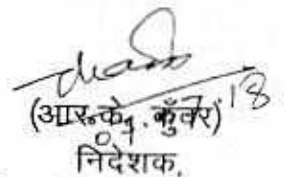 (आर.के. कुँवर) 18
निदेशक,